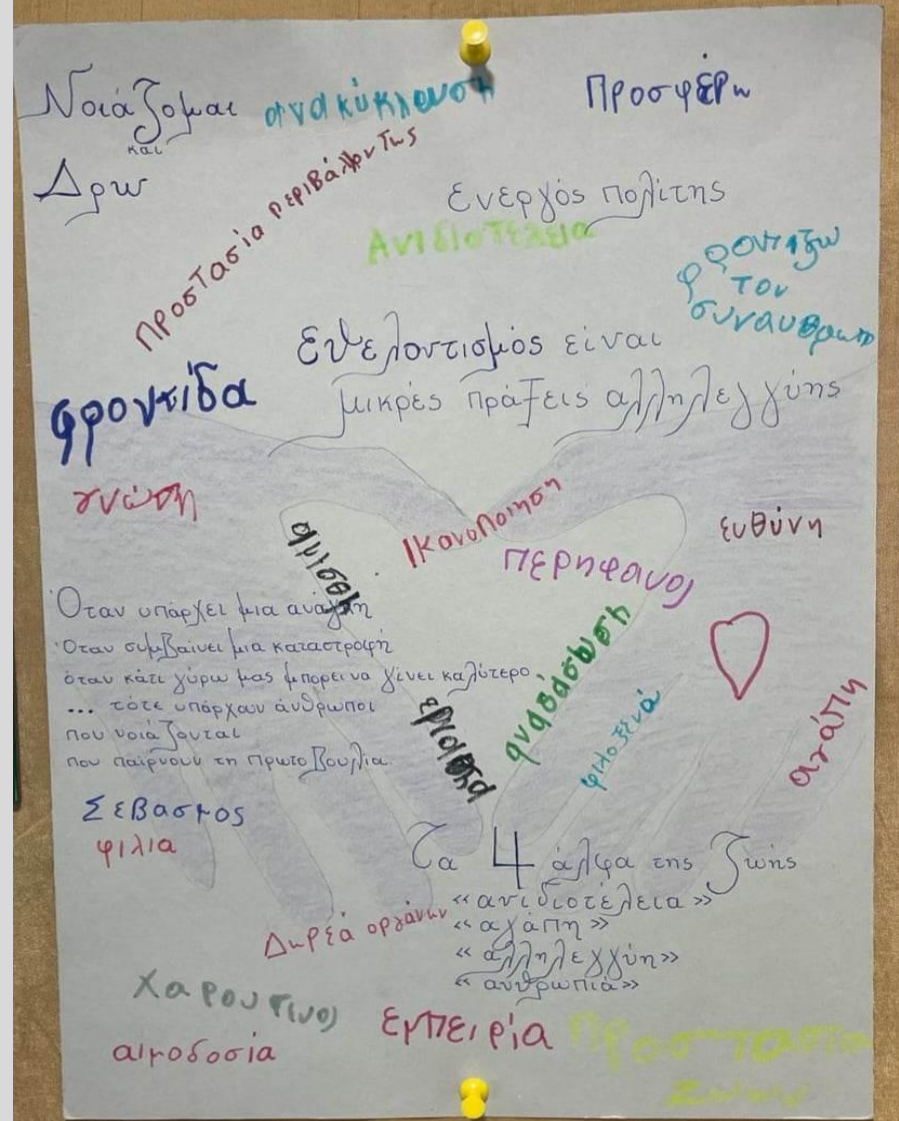 Νοιάζομαι
και
Δρω
ανακύκλωση
Προσφέρω
Προστασία περιβάλλοντως
Ενεργός πολίτης
Ανιδιοτέλεια
Φροντιζω
τον
συνανθρωπο
Εθελοντισμός είναι
μικρές πράξεις αλληλεγγύης
φροντίδα
γνώση
αμισθη
Ικανοποιηση
περηφανοι
ευθύνη
Όταν υπάρχει μια ανάγκη
Όταν συμβαίνει μια καταστροφή
όταν κάτι γύρω μας μπορεί να γίνει καλύτερο
... τότε υπάρχουν άνθρωποι
που νοιάζονται
που παίρνουν τη πρωτοβουλία.
εργασια
φιλοξενιά
αγάπη
Σεβασμος
φιλια
Τα 4 άλφα της ζωής
«ανιδιοτέλεια»
«αγάπη»
«αλληλεγγύη»
«ανθρωπιά»
Δωρεά οργάνων
αιμοδοσία
εμπειρία
Προστασια
ζωων